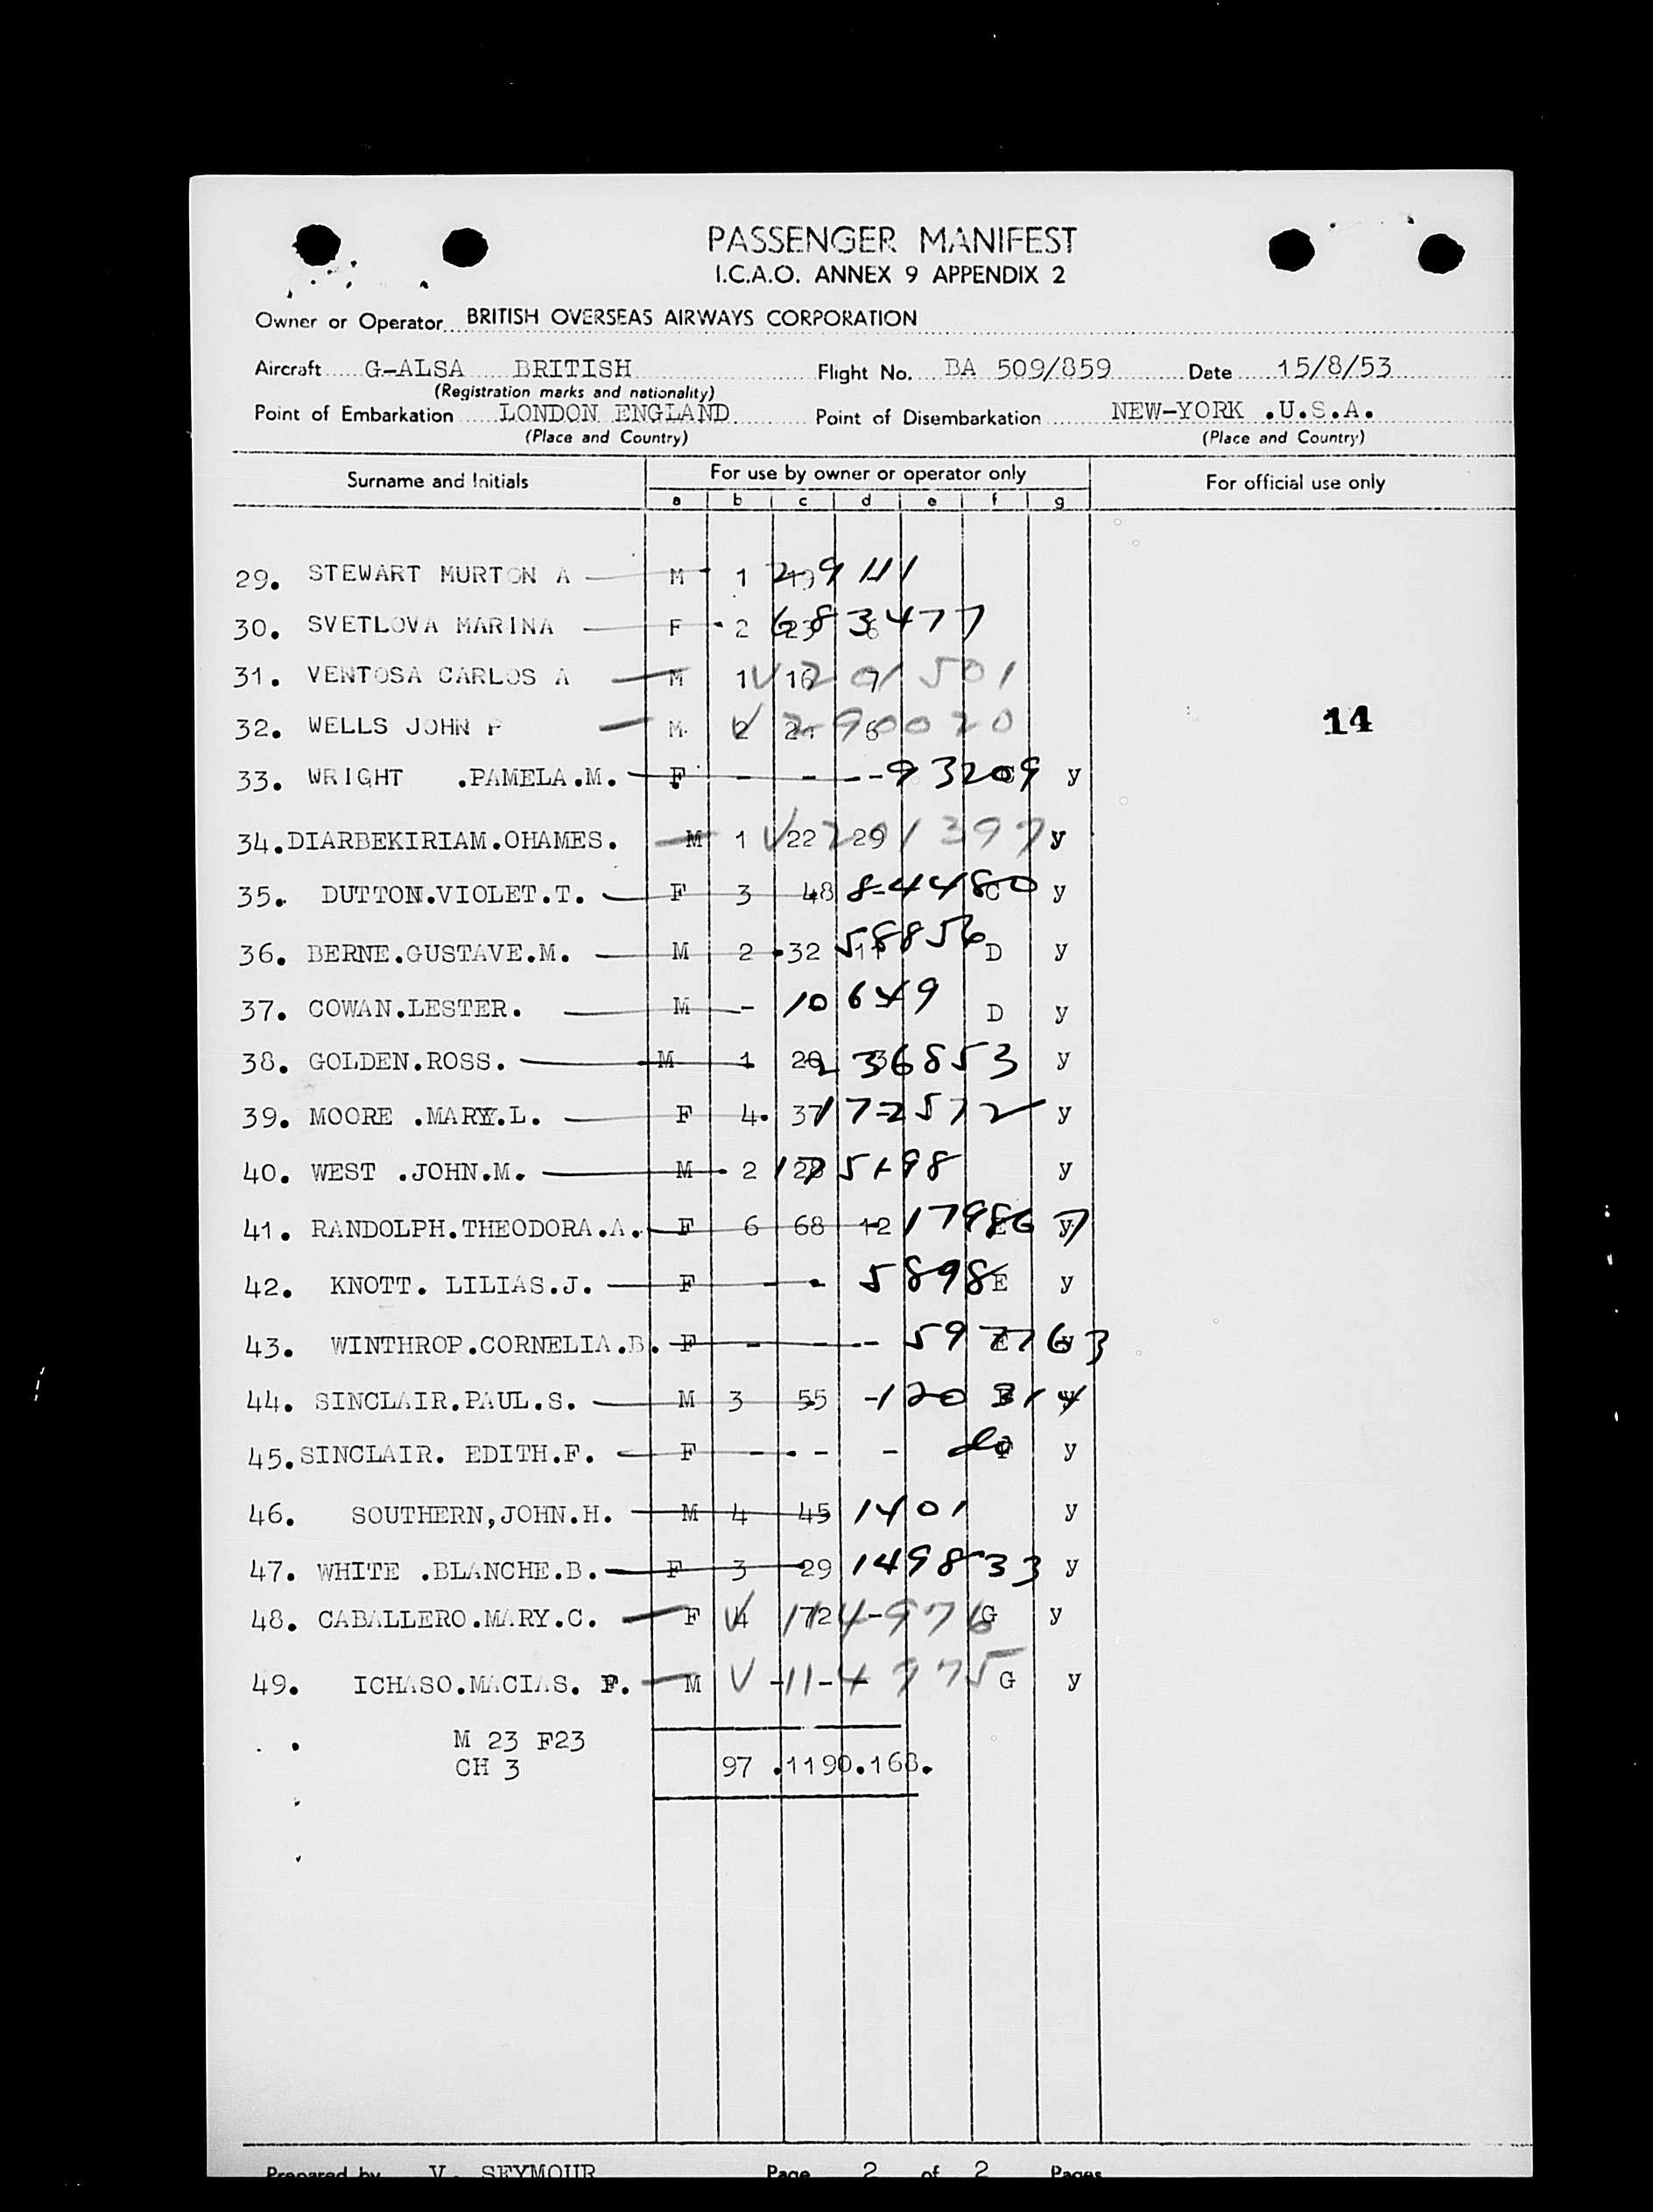 PASSENGER MANIFEST
I.C.A.O. ANNEX 9 APPENDIX 2
Owner or Operator BRITISH OVERSEAS AIRWAYS CORPORATION
Aircraft G-ALSA BRITISH Flight No. BA 509/859 Date 15/8/53
(Registration marks and nationality)
Point of Embarkation LONDON ENGLAND Point of Disembarkation NEW-YORK .U.S.A.
(Place and Country) (Place and Country)
Surname and Initials For use by owner or operator only For official use only
a b c d e f g
29. STEWART MURTON A M 1
30. SVETLOVA MARINA F 2 683477
31. VENTOSA CARLOS A M 1 V 201501
32. WELLS JOHN P M. 2 V 290020 14
33. WRIGHT .PAMELA.M. F - - - - 93209 y
34.DIARBEKIRIAM.OHAMES. M 1 V 22 29 201397 y
35. DUTTON.VIOLET.T. F 3 48 8-4480 C y
36. BERNE.GUSTAVE.M. M 2 32 58856 D y
37. COWAN.LESTER. M - 10649 D y
38. GOLDEN.ROSS. M 1 236853 y
39. MOORE .MARY.L. F 4. 37 172572 y
40. WEST .JOHN.M. M 2 28 175198 y
41. RANDOLPH.THEODORA.A. F 6 68 12 179867 y
42. KNOTT. LILIAS.J. F - - 5898 E y
43. WINTHROP.CORNELIA.B. F - - - 597763 y
44. SINCLAIR.PAUL.S. M 3 55 - 120314 y
45.SINCLAIR. EDITH.F. F - - - do y
46. SOUTHERN,JOHN.H. M 4 45 1401 y
47. WHITE .BLANCHE.B. F 3 29 149833 y
48. CABALLERO.MARY.C. F 4 V 72 - 114976 G y
49. ICHASO.MACIAS. F. M V - - - 114975 G y
M 23 F23
CH 3 97 .1190.168.
Prepared by V. SEYMOUR Page 2 of 2 Pages